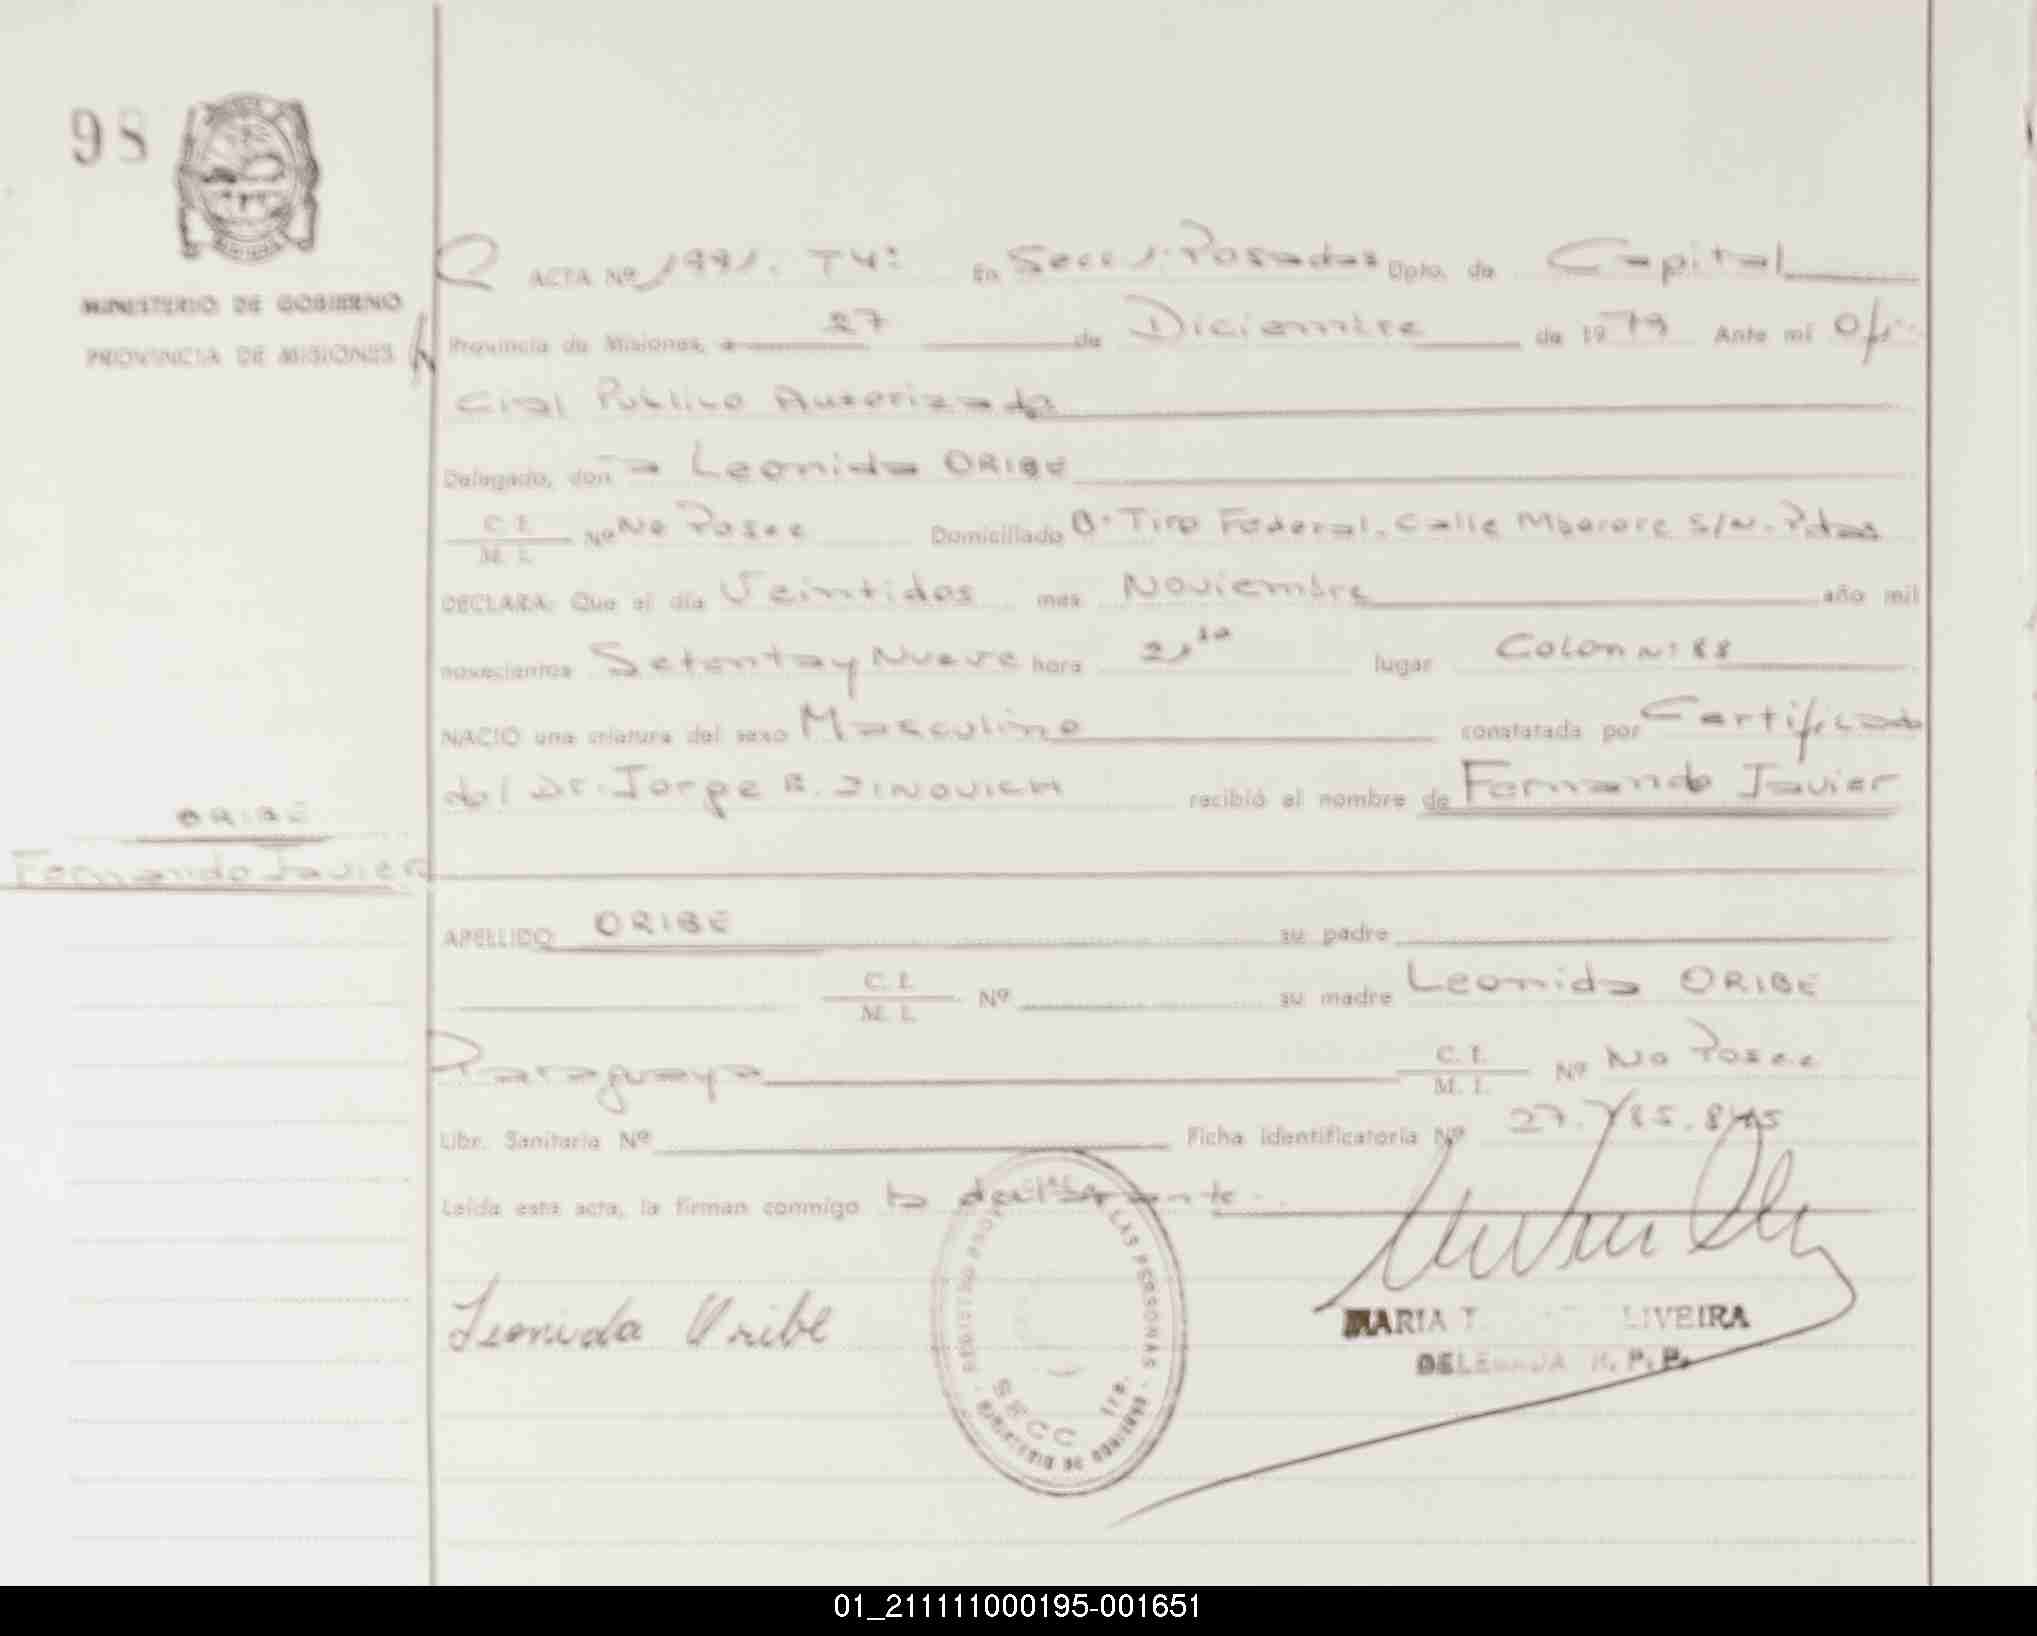 98
MINISTERIO DE GOBIERNO
PROVINCIA DE MISIONES
ACTA Nº 1991. T4º En Secc 1º Posadas Dpto. de Capital
Provincia de Misiones, a 27 de Diciembre de 1979 Ante mi Ofi-
cial Publico Autorizado
Delegado, don a Leonida ORIBE
C. I. / M. I. Nº No Posee Domiciliado Bº Tiro Federal. Calle Mborore S/N. Pdas
DECLARA: Que el día Veintidos mes Noviembre año mil
novecientos Setenta y Nueve hora lugar Colon Nº 88
NACIO una criatura del sexo Masculino constatada por Certificado
del Dr. Jorge R. ZINOVICH recibió el nombre de Fernando Javier
ORIBE
Fernando Javier
APELLIDO ORIBE su padre
C. I. / M. I. Nº su madre Leonida ORIBE
Paraguaya C. I. / M. I. Nº No Posee
Libr. Sanitaria Nº Ficha identificatoria Nº 27.785.845
Leída esta acta, la firman conmigo la declarante.
Leonida Oribe
LAS PERSONAS
SECC 1ra.
MARIA T LIVEIRA
DELEGADA R. P. P.
01_211111000195-001651